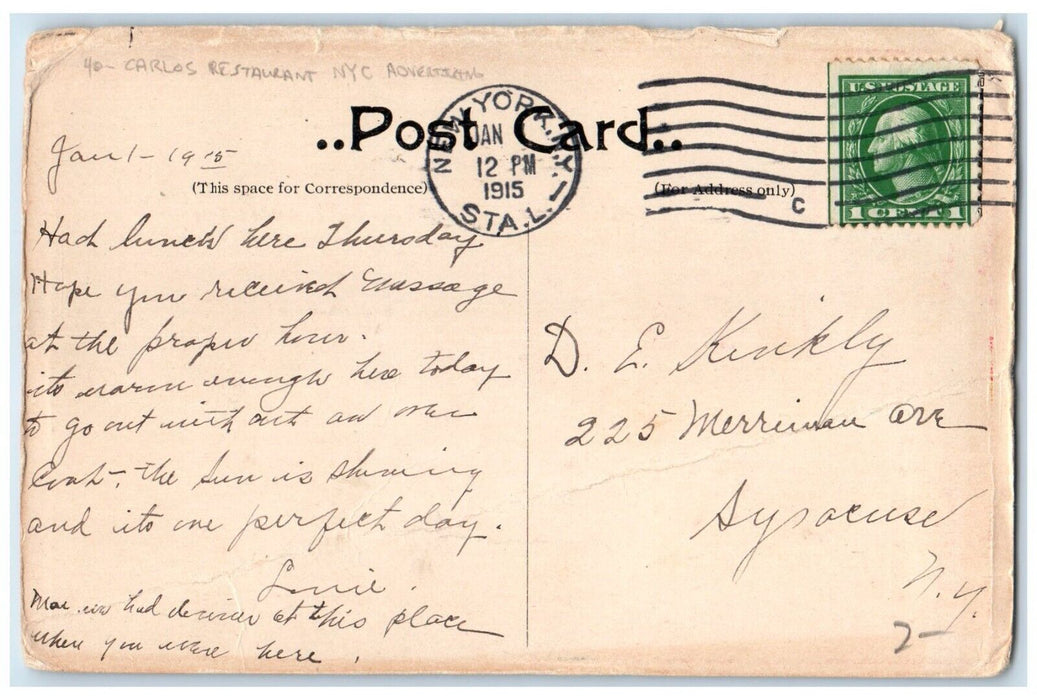 40- CARLOS RESTAURANT NYC ADVERTISING
..Post Card..
NEW YORK, N.Y.
JAN
12 PM
1915
STA. L.
C
U.S. POSTAGE
1 CENT 1
Jan 1 - 1915
(This space for Correspondence)
(For Address only)
Had lunch here Thursday
Hope you received message
at the proper hour.
its warm enough here today
to go out with out an over
Coat - the Sun is shining
and its one perfect day.
Louie.
we had dinner at this place
when you were here.
D. E. Kinkly
225 Merriman Ave
Syracuse
N.Y.
2-